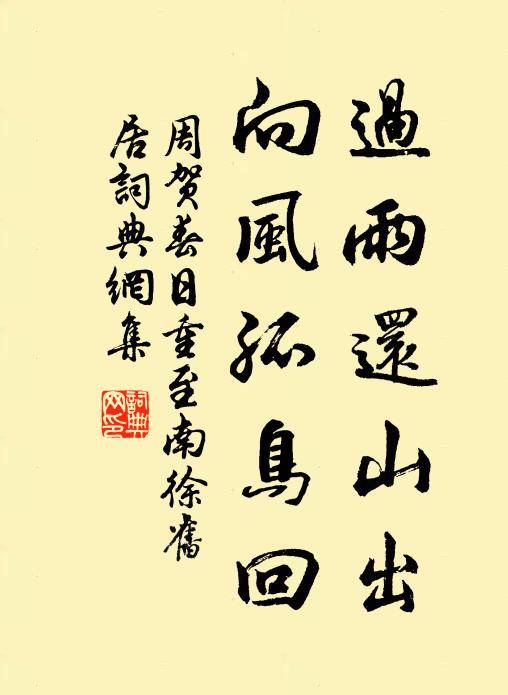 過雨還山出
向風孤鳥回
周賀春日重至南徐舊
居詞典網集
詞典
网印